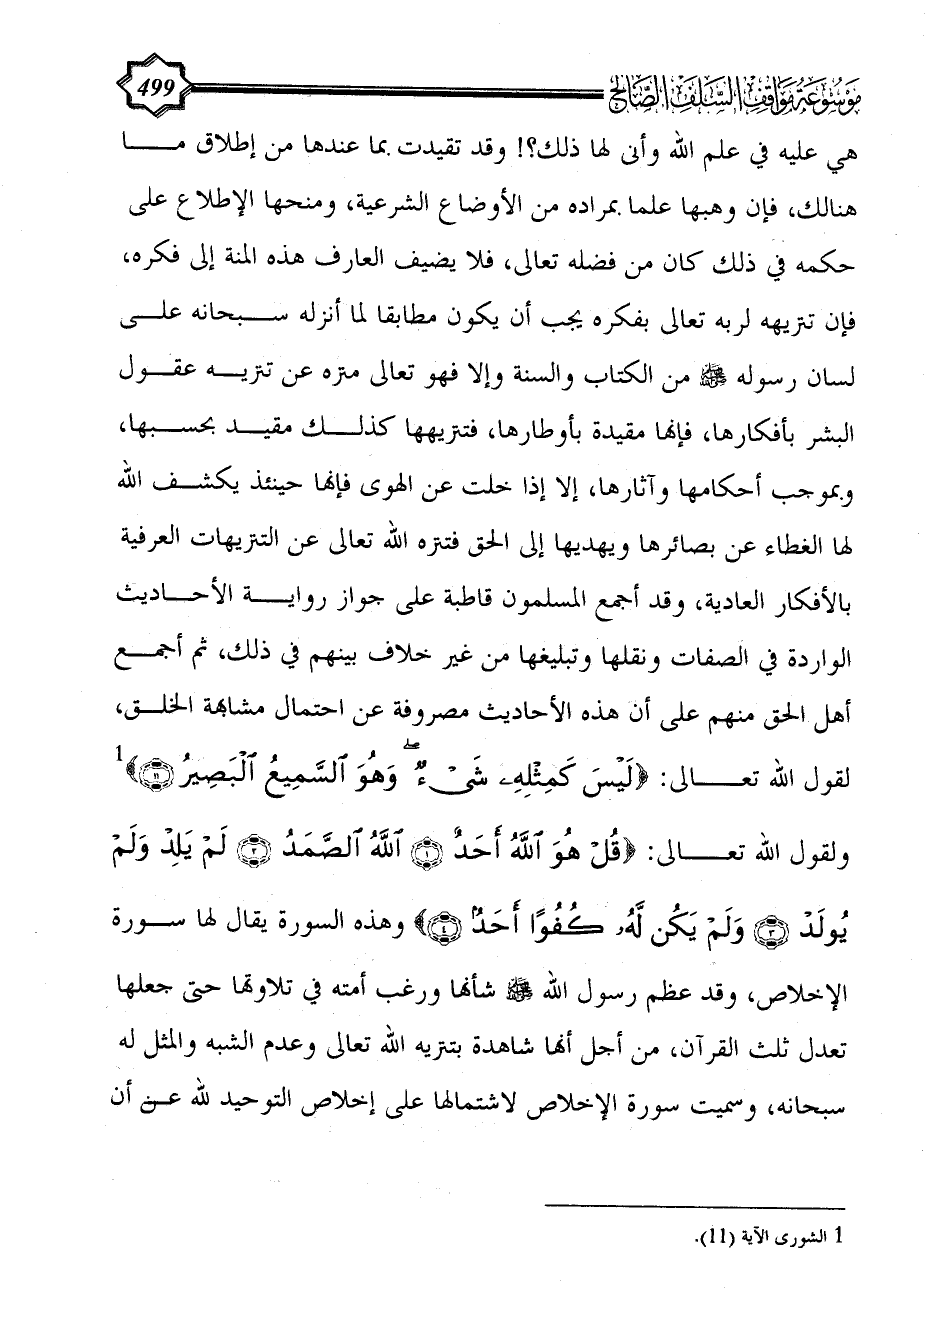 موسوعة مواقف السلف الصالح
499
هي عليه في علم الله وأنى لها ذلك؟! وقد تقيدت بما عندها من إطلاق مــا
هنالك، فإن وهبها علما بمراده من الأوضاع الشرعية، ومنحها الإطلاع على
حكمه في ذلك كان من فضله تعالى، فلا يضيف العارف هذه المنة إلى فكره،
فإن تنزيهه لربه تعالى بفكره يجب أن يكون مطابقا لما أنزله سبحانه على
لسان رسوله ﷺ من الكتاب والسنة وإلا فهو تعالى منزه عن تنزيه عقول
البشر بأفكارها، فإنها مقيدة بأوطارها، فتنزيهها كذلك مقيد بحسبها،
وبموجب أحكامها وآثارها، إلا إذا خلت عن الهوى فإنها حينئذ يكشف الله
لها الغطاء عن بصائرها ويهديها إلى الحق فتنزه الله تعالى عن التنزيهات العرفية
بالأفكار العادية، وقد أجمع المسلمون قاطبة على جواز رواية الأحاديث
الواردة في الصفات ونقلها وتبليغها من غير خلاف بينهم في ذلك، ثم أجمع
أهل الحق منهم على أن هذه الأحاديث مصروفة عن احتمال مشابهة الخلق،
لقول الله تعالى: ﴿لَيْسَ كَمِثْلِهِۦ شَىْءٌ ۖ وَهُوَ ٱلسَّمِيعُ ٱلْبَصِيرُ ۝١١﴾1
ولقول الله تعالى: ﴿قُلْ هُوَ ٱللَّهُ أَحَدٌ ۝١ ٱللَّهُ ٱلصَّمَدُ ۝٢ لَمْ يَلِدْ وَلَمْ
يُولَدْ ۝٣ وَلَمْ يَكُن لَّهُۥ كُفُوًا أَحَدٌۢ ۝٤﴾ وهذه السورة يقال لها سورة
الإخلاص، وقد عظم رسول الله ﷺ شأنها ورغب أمته في تلاوتها حتى جعلها
تعدل ثلث القرآن، من أجل أنها شاهدة بتنزيه الله تعالى وعدم الشبه والمثل له
سبحانه، وسميت سورة الإخلاص لاشتمالها على إخلاص التوحيد لله عن أن
1 الشورى الآية (11).